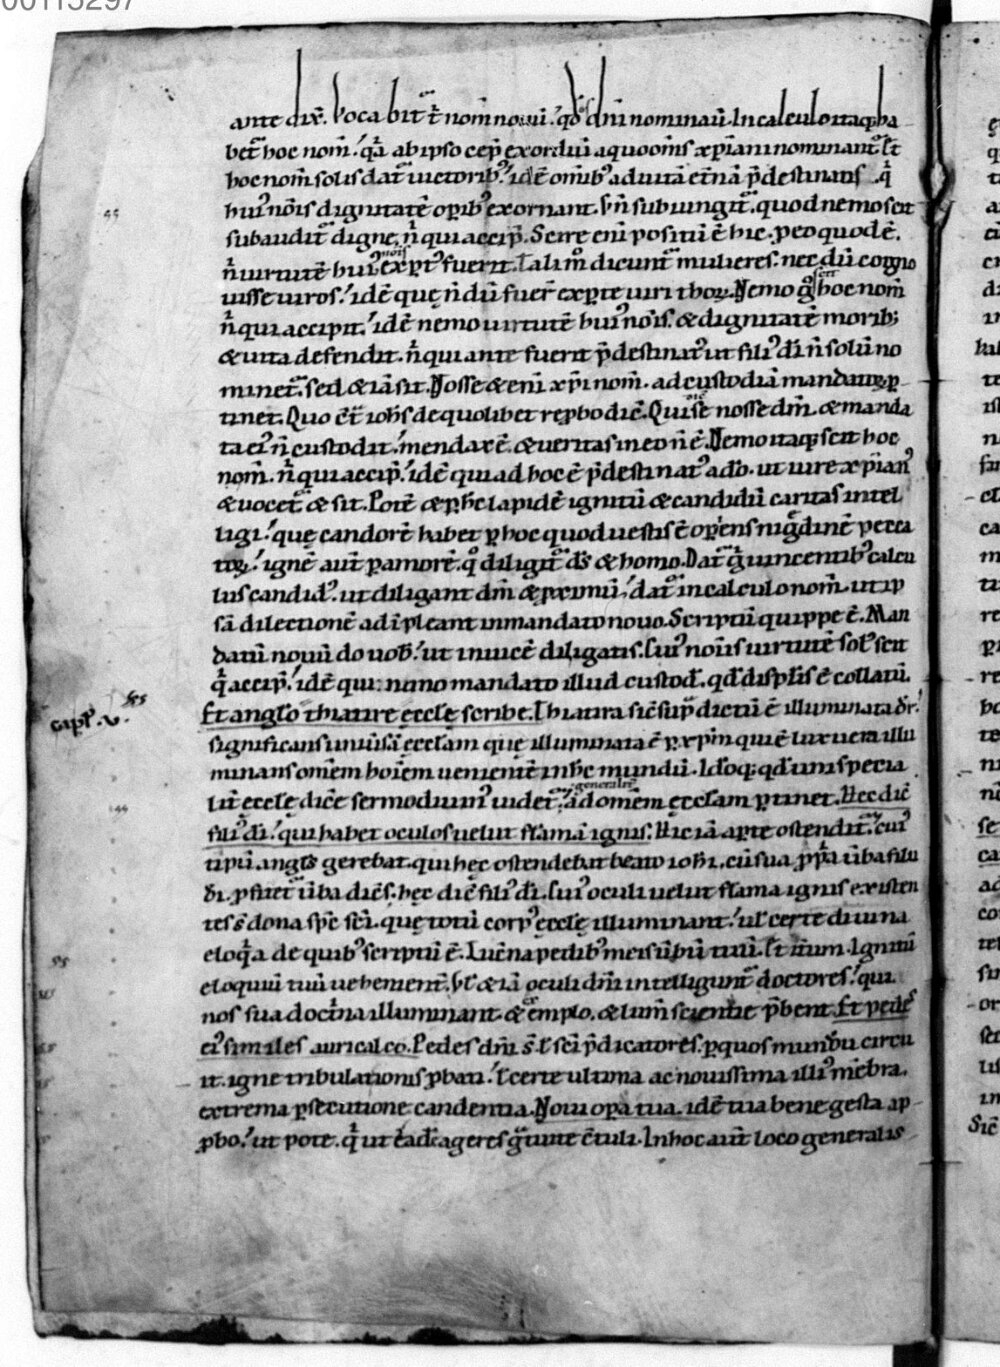 00115297
ante dix̄. Vocabitᷓ t̄ nom̄ novū. qd̓ dn̄i nominaū. In calculo itaq; ha
betᷓ hoc nom̄. qͣ ab ipso cep̄ exordiū a quo om̄s xp̄iani nominantᷓ. ł t̄
hoc nom̄ solis datᷓ victorib;. idē om̄ib; ad vitā et̄nā p̄destinatis. qͥ
hui9 nōis dignitatē op̄ib; exornant. Vn̄ subiungitᷓ. quod nemo scit
subauditᷓ digne. n̄ qui accip̄. Scire eni positū ē hic. p eo quod ē.
n̄ virtutē hui9 nōis exp̄t9 fuerit. Tali m̊ dicuntᷓ mulieres. nec dū cogno
visse viros. idē quę n̄ dū fuer̄ expte viri thoꝝ. Nemo g̊ scit hoc nom̄
n̄ qui accipit. idē nemo virtutē hui9 nōis. & dignitatē morib;
& vita defendit. n̄ qui ante fuerit p̄destinat9 ut fili9 dī n̄ solū no
minetᷓ. sed & iā sit. Nosse & eni xp̄i nom̄. ad custodiā mandatoꝝ p
tinet. Quo ēt̄ ioħs de quolibet repbo dic̄. Qui se nosse dm̄. & manda
ta ei9 n̄ custodit. mendax ē. & veritas in eo n̄ ē. Nemo itaq; scit hoc
nom̄. n̄ qui accip̄. idē qui ad hoc ē p̄destinat9 a dō. ut vire xp̄ian9
& vocetᷓ & sit. Potē & p hc̄ lapidē ignitū & candidū caritas intel
ligi. quę candorē habet p hoc quod vestis ē opiens nigdinē pecca
toꝝ. ignē aut̄ p amorē. q̊ diligitᷓ ds̄ & homo. Datᷓ g̊ vincentib; calcu
lus candid9. ut diligant dm̄ & pximū. datᷓ in calculo nom̄. ut ip
sā dilectionē adīpleant in mandato novo. Scriptū quippe ē. Man
datū novū do vob̄. ut invicē diligatis. Cui9 nōis virtutē sol9 scit
qͥ accip̄. idē qui nūno mandato illud custod̄. qd̄ displis ē collatū.
capł. v.
Et anglo thiatire ęcclę scribe. Thiatira sic̄ sup̄ dictū ē illuminata dr̄.
significans univsā ęcclam quę illuminata ē p xp̄m qui ē lux vera illu
minans omēm hoīem venientē in hc̄ mundū. Ido q; qd̄ uni specia
lit̄ ęcclę dic̄e sermo divin9 videtᷓ. generalit̄ ad omēm ęcclam ptinet. Hec dic̄
fili9 dī. qui habet oculos velut flamā ignis. Hic iā apte ostenditᷓ. cui9
tipū angls gerebat. qui hęc ostendebat beato ioħi. cū sua p̄pa v̄ba filii
dī. pfiret v̄ba dic̄s. hęc dic̄ fili9 dī. Cui9 oculi velut flama ignis existen
tes s̄ dona sp̄c sc̄i. quę totū corp9 ęcclę illuminant. vl̄ certe divina
eloqͥa de quib; scriptū ē. Lucn̄a pedib; meis v̄bū tuū. ł t̄ iīum. Ignitū
eloquiū tuū vehement̄. Vł & iā oculi dn̄i intelliguntᷓ doctores. qui
nos sua doctͥna illuminant. & exemplo. & lum̄ scientie p̄bent. Et pedes
ei9 similes auricalco. Pedes dn̄i s̄ ł sc̄i p̄dicatores. p quos mundū circu
it. igne tribulationis pbati. ł certe ultima ac novissima illi9 mēbra.
extrema psecutione candentia. Novi opa tua. idē tua bene gesta ap
pbo. ut pote. qͥ ut ea ageres gͣtuite c̄tuli. In hoc aut̄ loco generalis